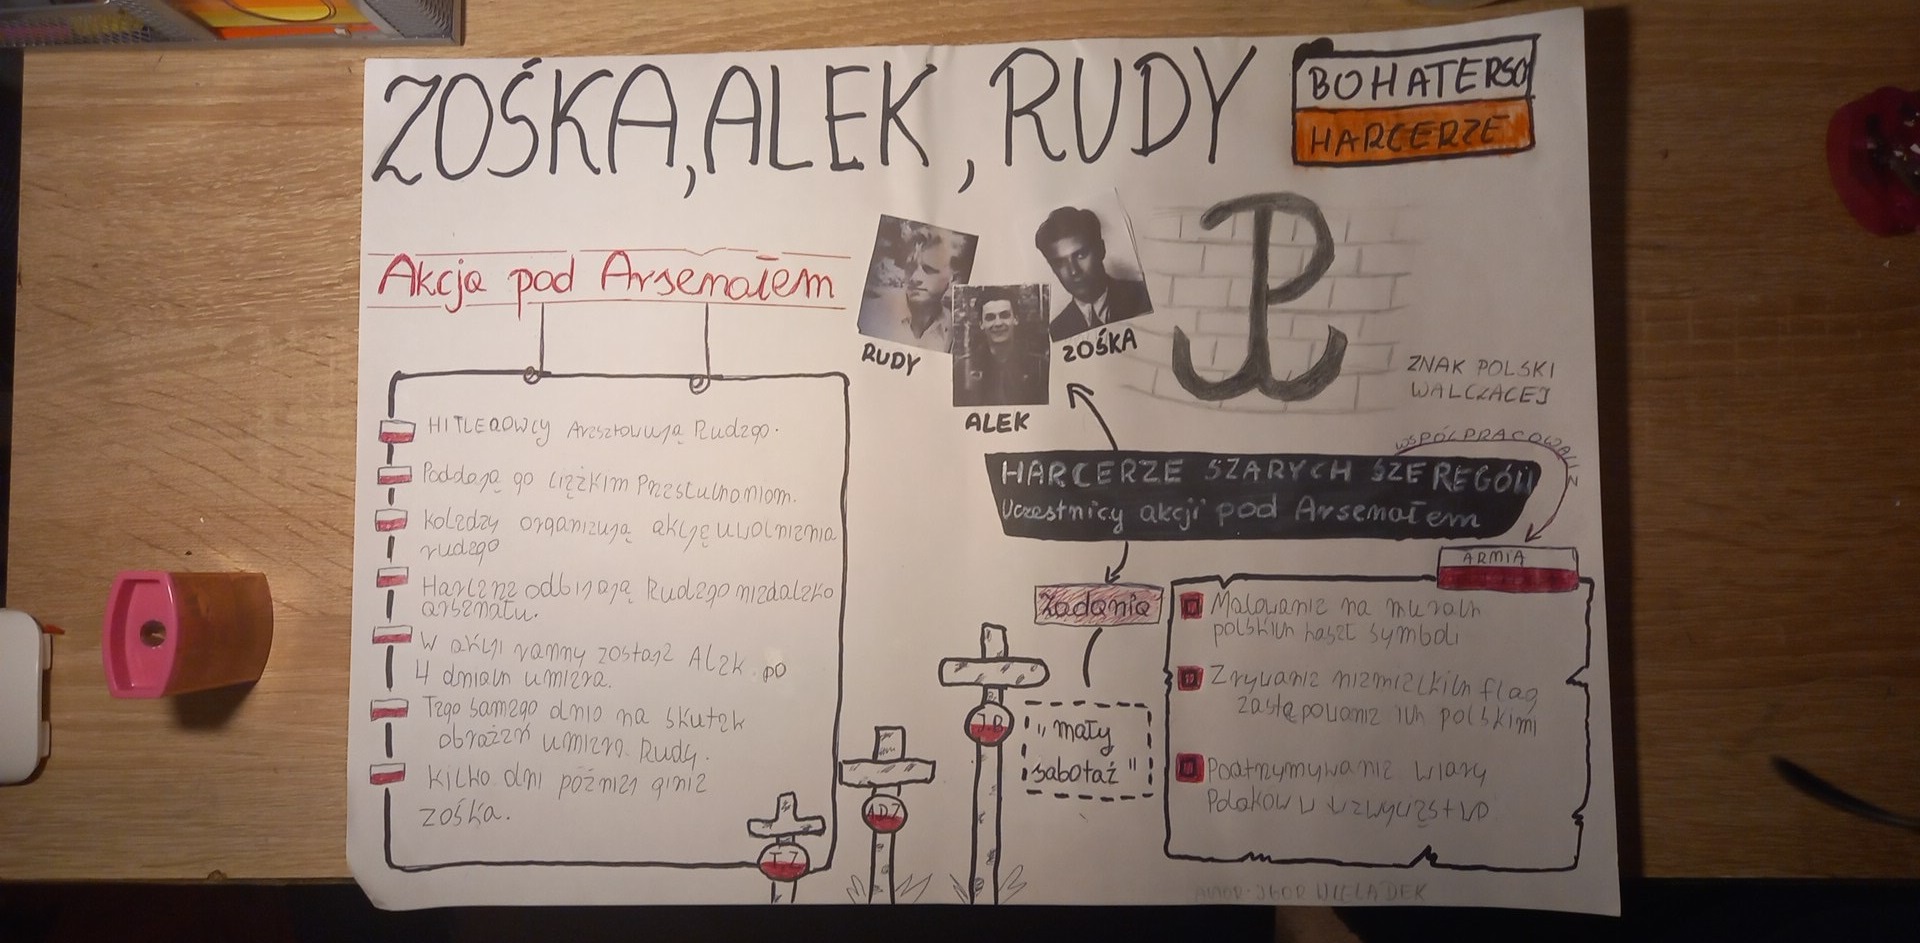 ZOŚKA, ALEK, RUDY
BOHATERSCY
HARCERZE
Akcja pod Arsenałem
RUDY
ALEK
ZOŚKA
ZNAK POLSKI
WALCZĄCEJ
HITLEROWCY Aresztowują Rudego.
Poddają go ciężkim Przesłuchaniom.
Koledzy organizują akcję uwolnienia
rudego
Harcerze odbijają Rudego niedaleko
arsenału.
W akcji ranny zostaje Alek. po
4 dniach umiera.
Tego samego dnia na skutek
obrażeń umiera Rudy.
Kilka dni później ginie
zośka.
T.Z
A.D.Z
J.B
HARCERZE SZARYCH SZEREGÓW
Uczestnicy akcji pod Arsenałem
WSPÓŁPRACOWALI Z
ARMIA
Zadania
"mały
sabotaż"
Malowanie na murach
polskich haseł symboli
Zrywanie niemieckich flag
zastępowanie ich polskimi
Podtrzymywanie wiary
Polaków w zwycięstwo
AUTOR: IGOR WIELADEK